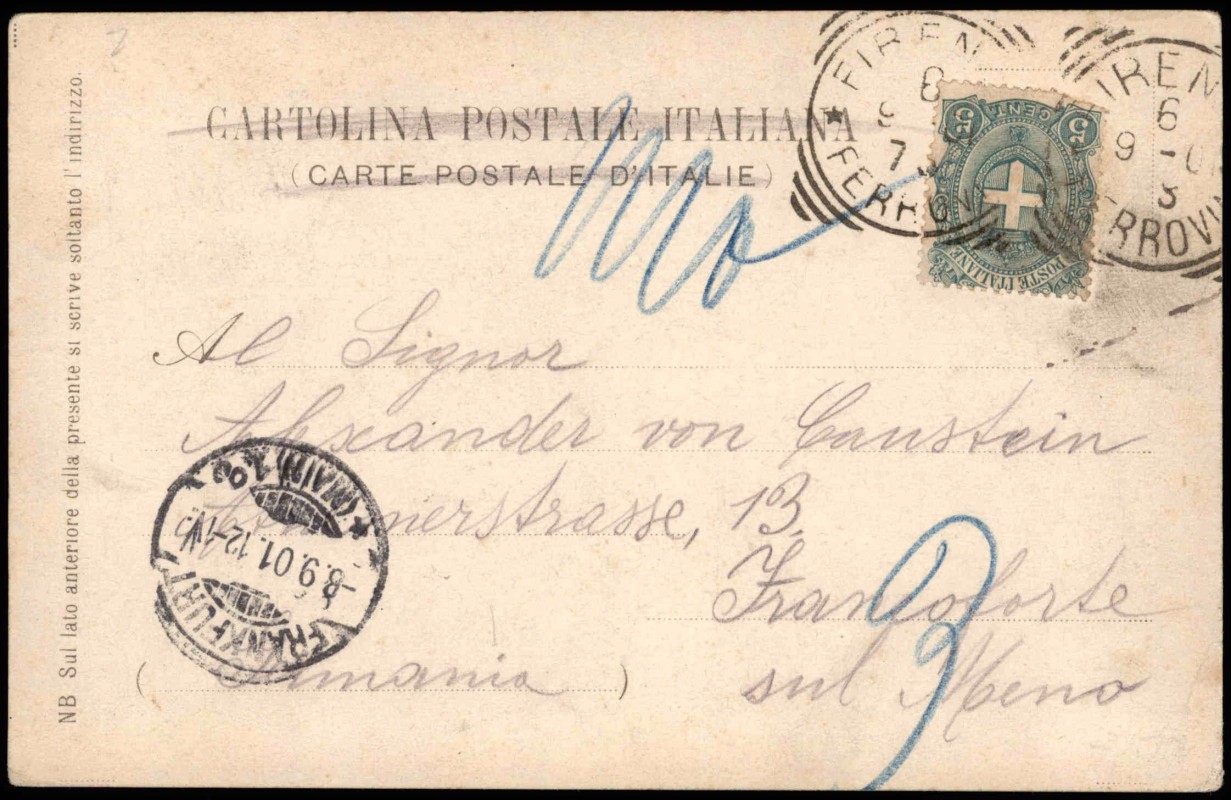 CARTOLINA POSTALE ITALIANA
(CARTE POSTALE D'ITALIE)
NB Sul lato anteriore della presente si scrive soltanto l'indirizzo.
FIREN
6
9
7
FERROV
IREN
6
9 -0
3
RROVIA
5 CENT 5
POSTE ITALIANE
Al Signor
Alexander von Canstein
strasse, 13.
Francoforte
(Germania)
sul Meno
FRANKFURT
-8.9.01.12-1N
(MAIN) 1.